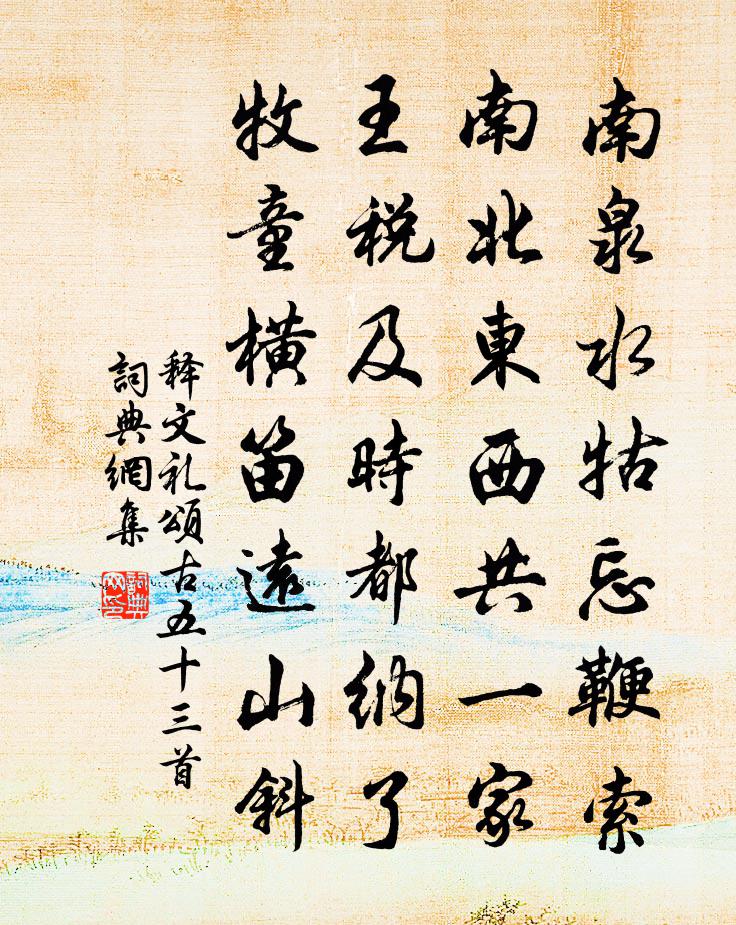 南泉水牯忘鞭索
南北東西共一家
王税及時都納了
牧童横笛遠山斜
释文礼頌古五十三首
詞典網集